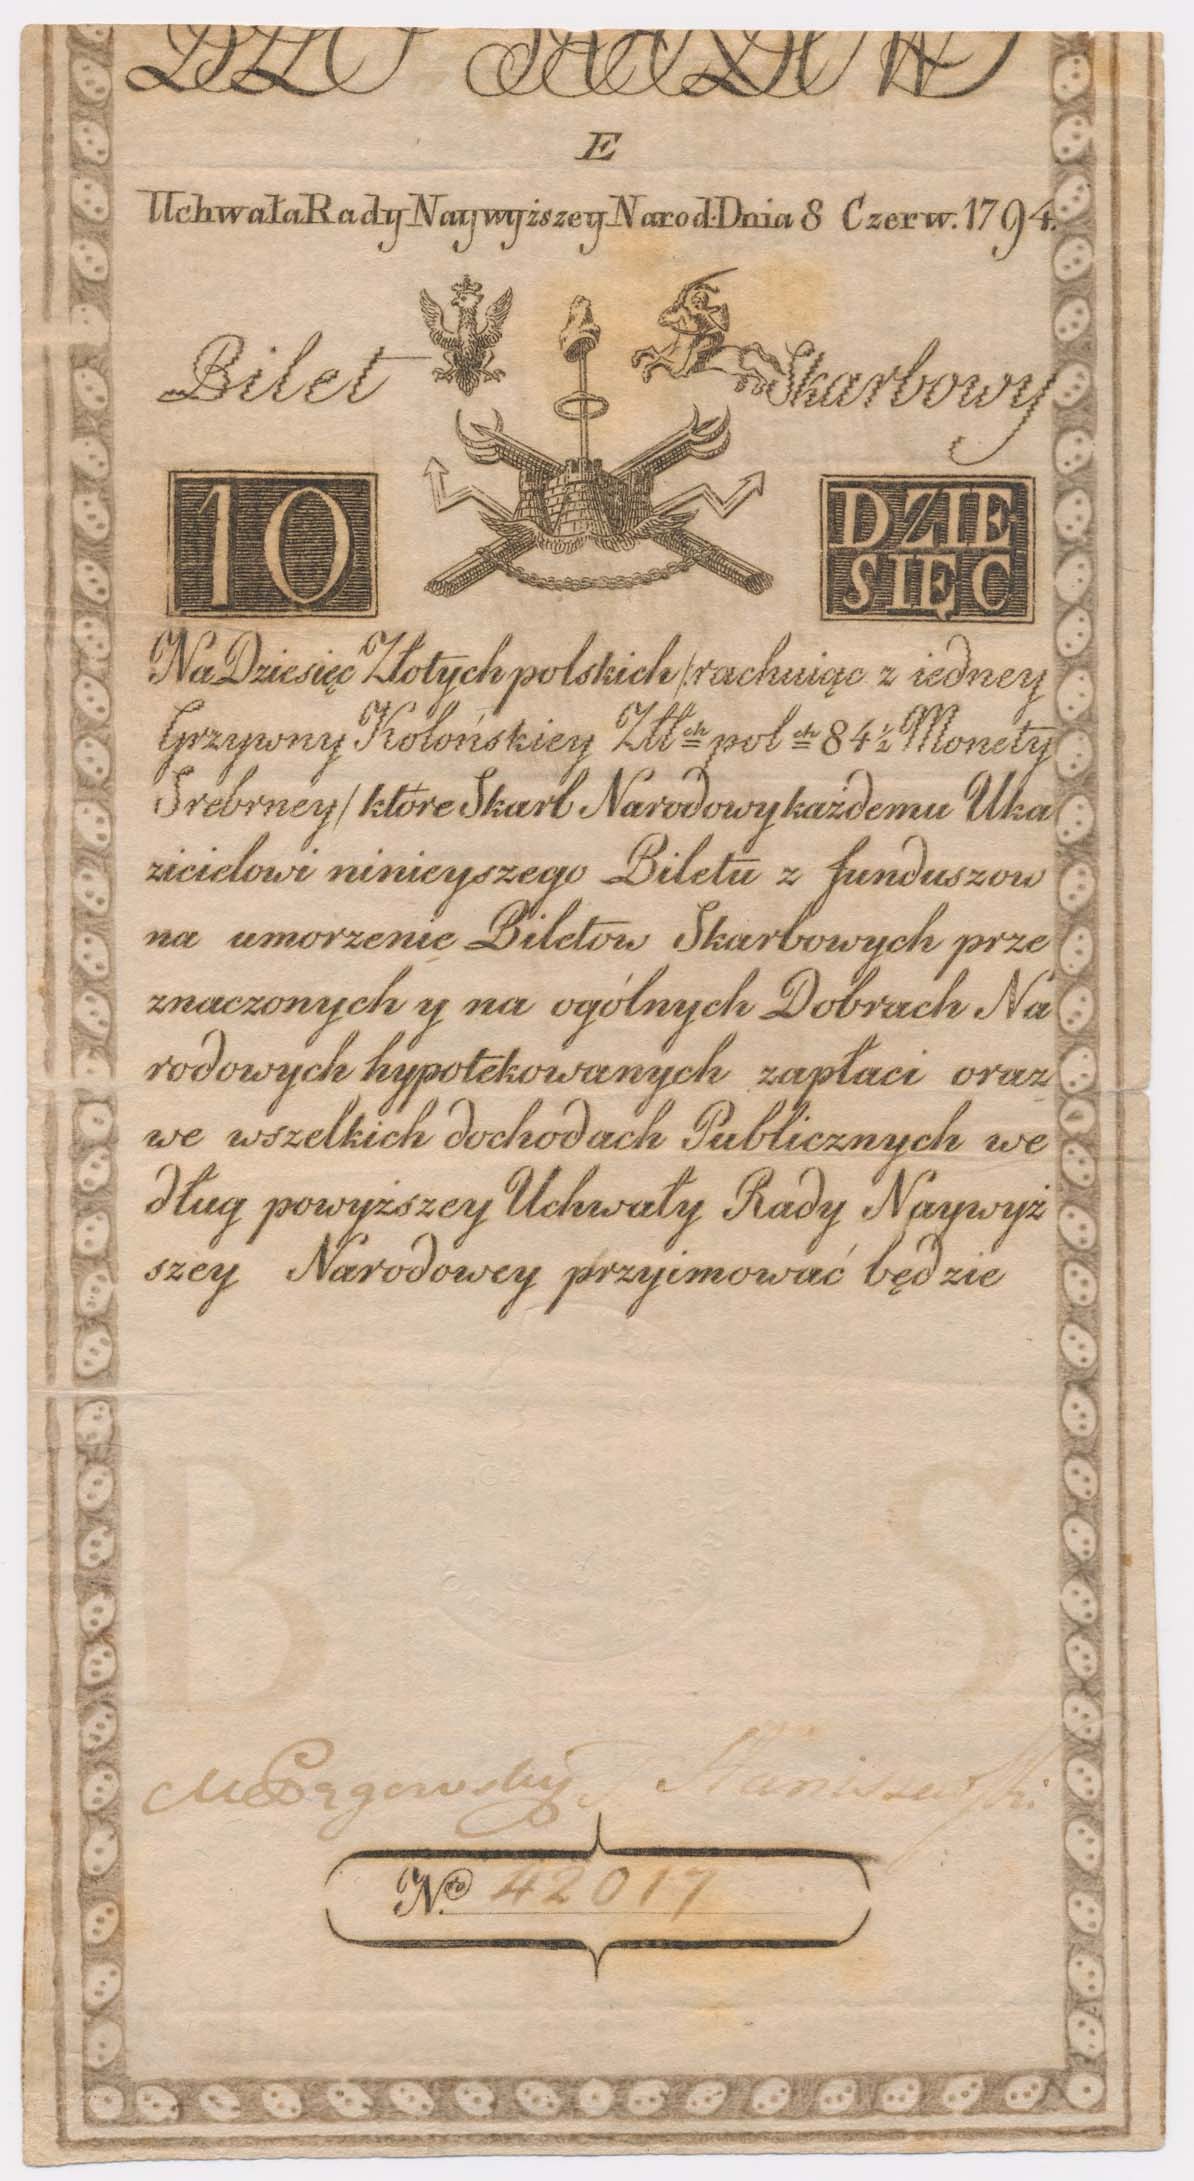 E
Uchwała Rady Naywyższey Narod. Dnia 8 Czerw. 1794.
Bilet Skarbowy
10 DZIE
SIĘĆ
Na Dziesięc Złotych polskich /rachuiąc z iedney
Grzywny Kolońskiey Złł ch pol ch 84 ½ Monety
Srebrney/ które Skarb Narodowy każdemu Uka
zicielowi ninieyszego Biletu z funduszow
na umorzenie Biletow Skarbowych prze
znaczonych y na ogólnych Dobrach Na
rodowych hypotekowanych zapłaci oraz
we wszelkich dochodach Publicznych we
dług powyższey Uchwały Rady Naywyż
szey Narodowey przyimować będzie
B S
M Pągowski Staniszewski
Nro 42017